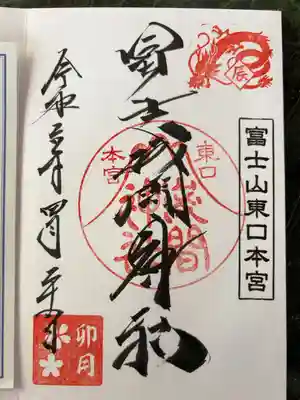 辰
富士山東口本宮
東口
本宮
冨士浅間神社
令和六年四月
卯月